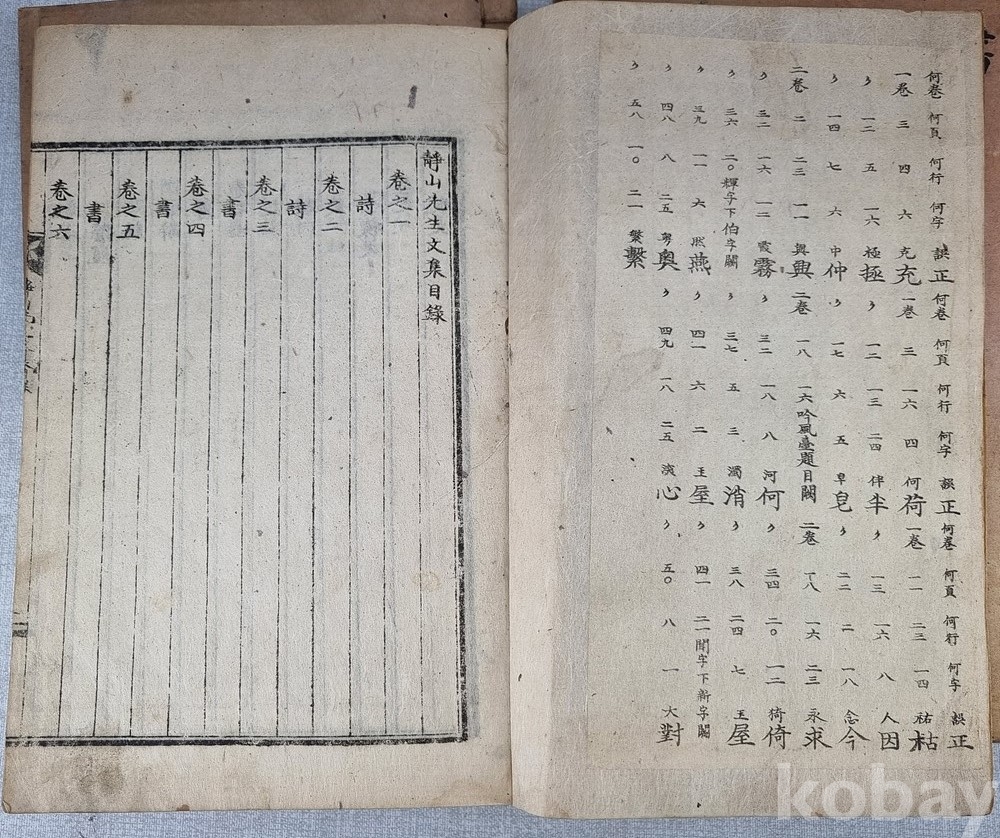 何卷 何頁 何行 何字 誤 正 何卷 何頁 何行 何字 誤 正 何卷 何頁 何行 何字 誤 正
一卷 三 四 六 充 充 一卷 三 一六 四 何 荷 一卷 一一 二三 一四 祐 枯
〃 一二 五 一六 極 極 〃 一二 一三 二四 伴 半 〃 一三 一六 八 人 因
〃 一四 七 六 中 仲 〃 一七 六 五 皁 皂 〃 二二 二 一八 念 今
二卷 二 二三 一一 與 興 二卷 一八 一六 吟風臺題目闕 二卷 一八 一六 二三 永 求
〃 三二 一六 一二 霞 霧 〃 三二 一八 八 河 何 〃 三四 二〇 一二 猗 倚
〃 三六 二〇 輝字下伯字闕 〃 三七 五 三 濁 消 〃 三八 二四 七 玉 屋
〃 三九 一一 六 燕 〃 四一 六 二 王 屋 〃 四一 二一 聞字下新字闕
〃 四八 八 二五 粤 奧 〃 四九 一八 二五 演 心 〃 五〇 八 一 大 對
〃 五八 一〇 二一 繁 繫
靜山先生文集目錄
卷之一
詩
卷之二
詩
卷之三
書
卷之四
書
卷之五
書
卷之六
kobay